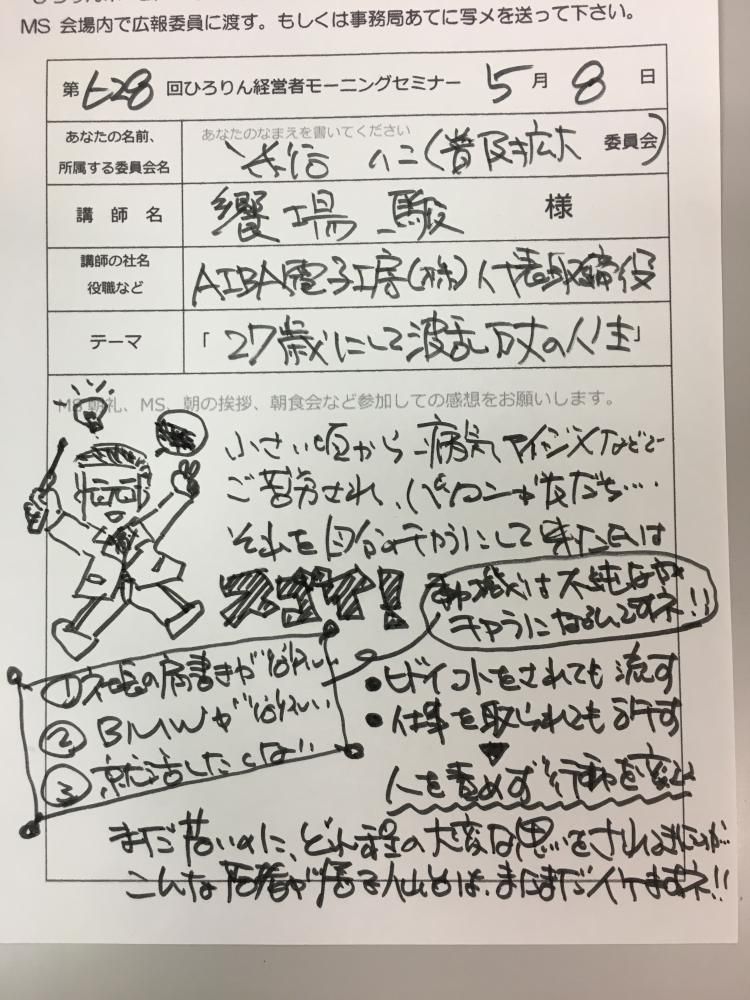 MS 会場内で広報委員に渡す。もしくは事務局あてに写メを送って下さい。
第 628 回ひろりん経営者モーニングセミナー 5 月 8 日
あなたの名前、
所属する委員会名
あなたのなまえを書いてください
(普及拡大 委員会)
講師名 饗場 駿 様
講師の社名
役職など
AIBA電子工房(株) 代表取締役
テーマ 「27歳にして波乱万丈の人生」
MS朝礼、MS、朝の挨拶、朝食会など参加しての感想をお願いします。
小さい頃から病気やイジメなどで
ご苦労され、パソコンが友だち…
それを自分のチカラにして来た氏は
スゴイ!
動機は不純な方が
チカラになるんですネ!!
①社長の肩書きが欲しい
②BMWが欲しい
③就活したくない
・ヒドイコトをされても流す
・仕事を取られても許す
▼
人を責めず行動を変える
まだ若いのに、どれ程の大変な思いをされ
こんな若者が居て は、まだまだイケますネ!!